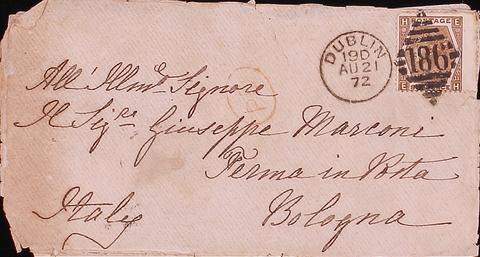 DUBLIN
19D
AU 21
72
H POSTAGE E
186
E H
All' Illmo Signore
PD
Il Sigre Giuseppe Marconi
Ferma in Posta
Italy
Bologna